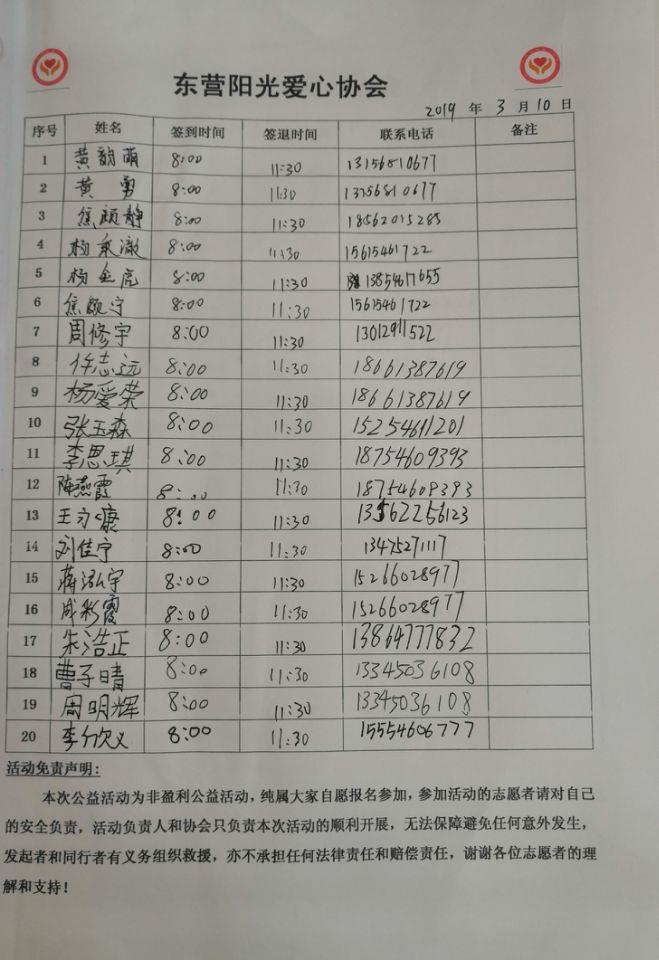 东营阳光爱心协会
2019 年 3 月 10 日
序号 姓名 签到时间 签退时间 联系电话 备注
1 黄韵萌 8:00 11:30 13156810677
2 黄勇 8:00 11:30 13156810677
3 焦颜静 8:00 11:30 18562015285
4 杨秉澈 8:00 11:30 15615461722
5 杨金虎 8:00 11:30 13854617655
6 焦颜宁 8:00 11:30 15615461722
7 周修宇 8:00 11:30 13012911522
8 许志远 8:00 11:30 18661387619
9 杨爱荣 8:00 11:30 18661387619
10 张玉森 8:00 11:30 15254611201
11 李思琪 8:00 11:30 18754609393
12 陈燕霞 8:00 11:30 18754609393
13 王子康 8:00 11:30 13562256123
14 刘佳宁 8:00 11:30 13475271117
15 蒋泓宇 8:00 11:30 15266028977
16 成彩霞 8:00 11:30 15266028977
17 朱浩正 8:00 11:30 13864777832
18 曹子晴 8:00 11:30 13345036108
19 周明辉 8:00 11:30 13345036108
20 李欣义 8:00 11:30 15554606777
活动免责声明:
本次公益活动为非盈利公益活动，纯属大家自愿报名参加，参加活动的志愿者请对自己
的安全负责，活动负责人和协会只负责本次活动的顺利开展，无法保障避免任何意外发生，
发起者和同行者有义务组织救援，亦不承担任何法律责任和赔偿责任，谢谢各位志愿者的理
解和支持！